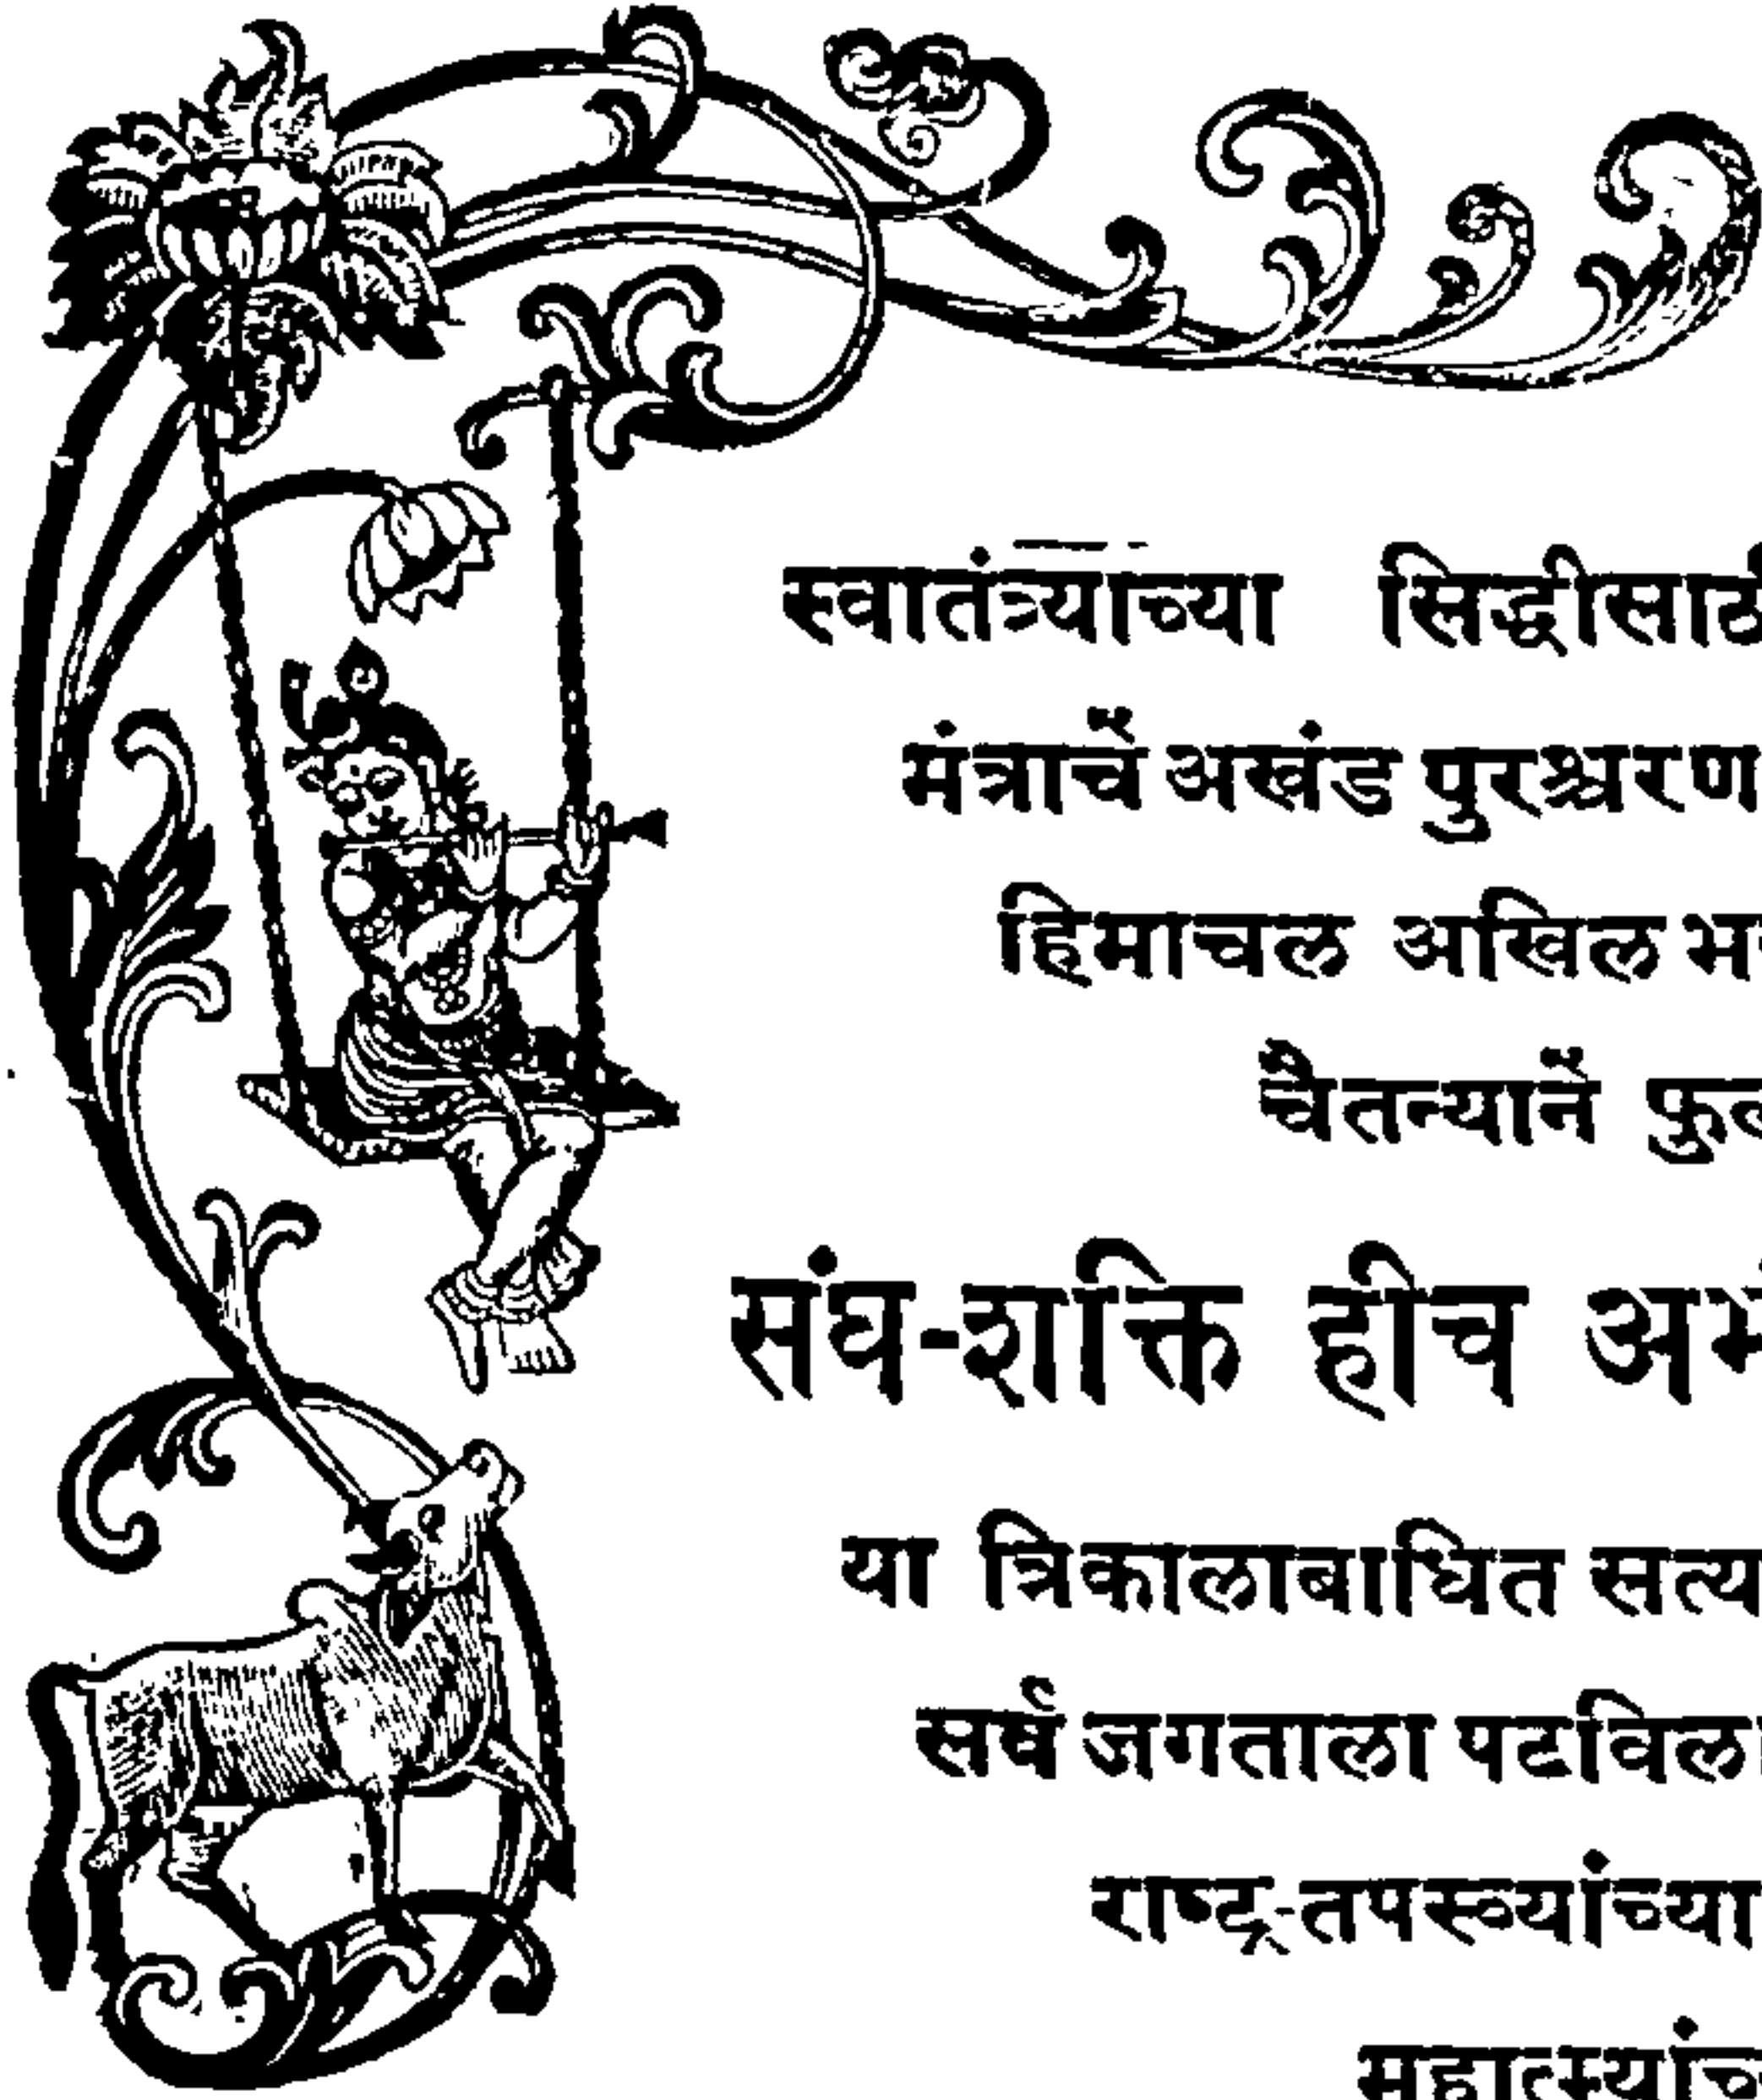 स्वातंत्र्याच्या सिद्धीसाठी
मंत्राचें अखंड पुरश्चरण
हिमाचल अखिल
चैतन्यानें
संघ-शक्ति हीच
या त्रिकालाबाधित सत्य
सर्व जगताला
राष्ट्र-तपस्व्यांच्या